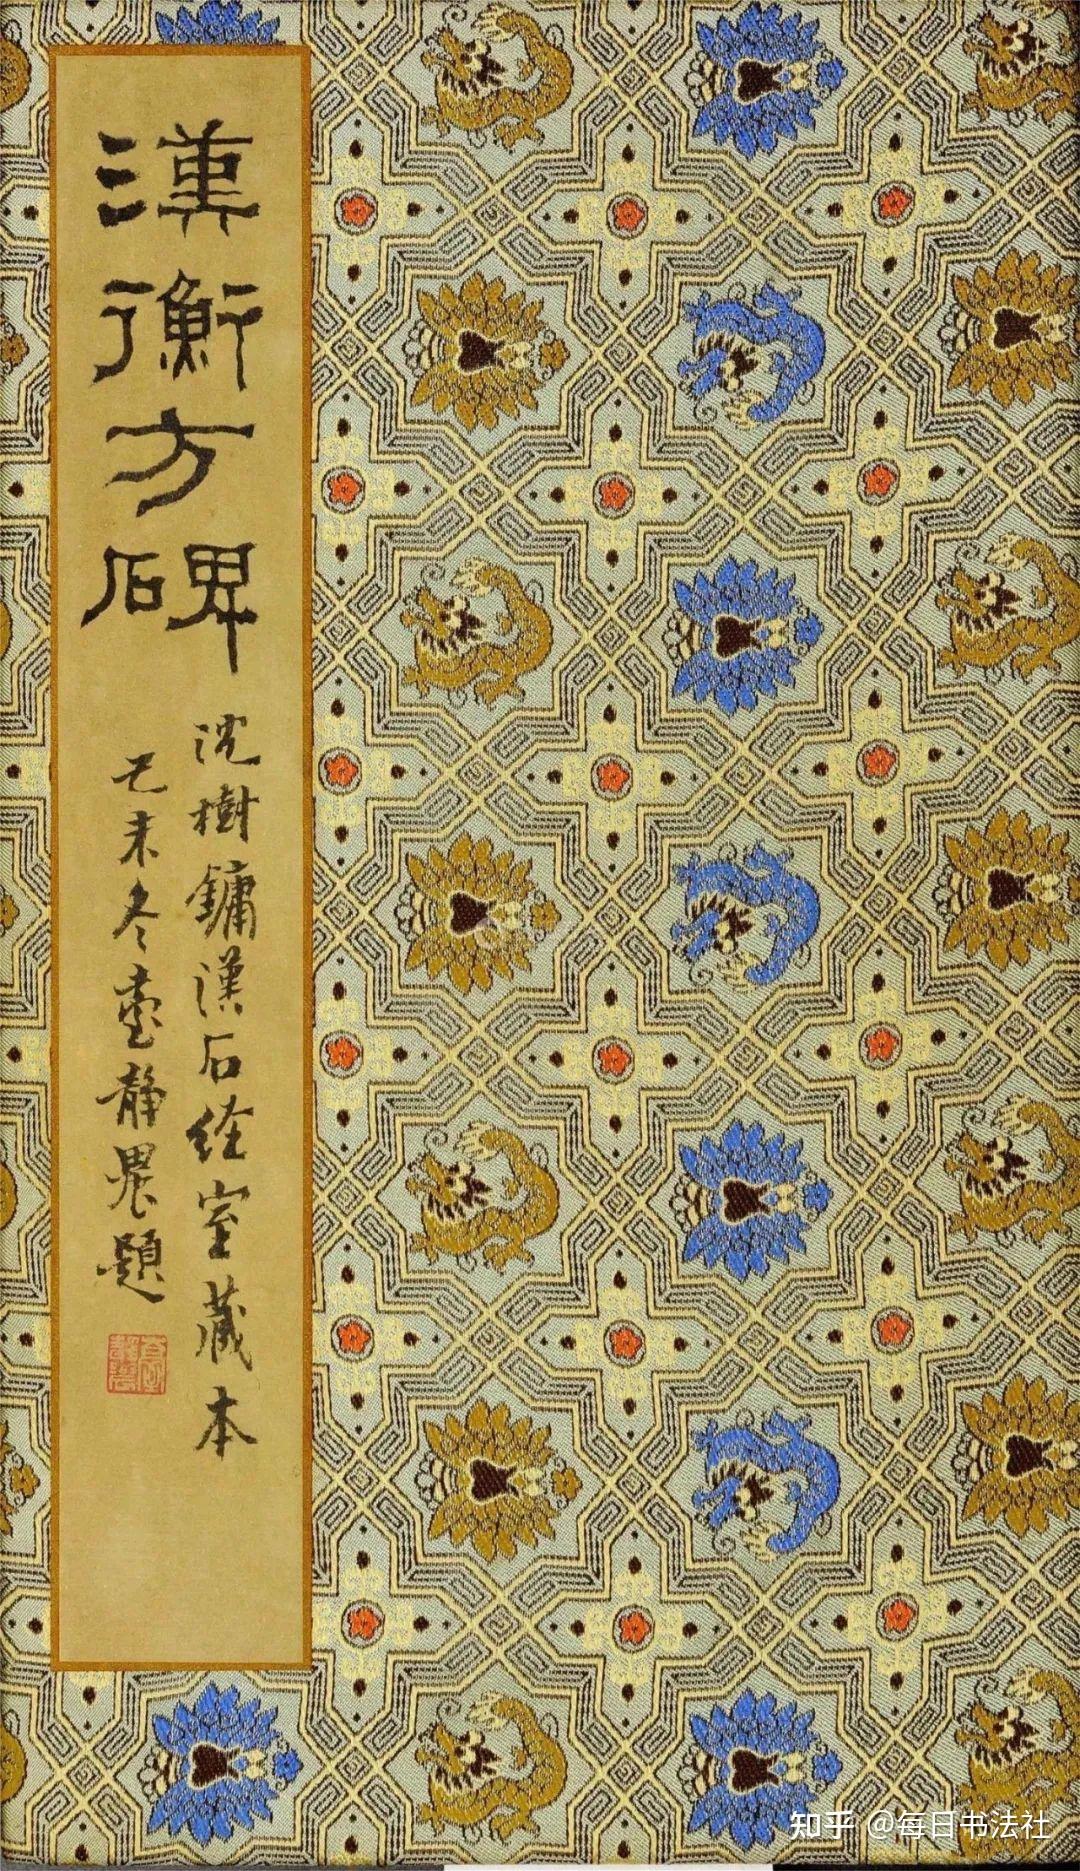 漢衡方碑
沈樹鏞漢石經室藏本
己未冬壺静晨題
知乎 @每日书法社